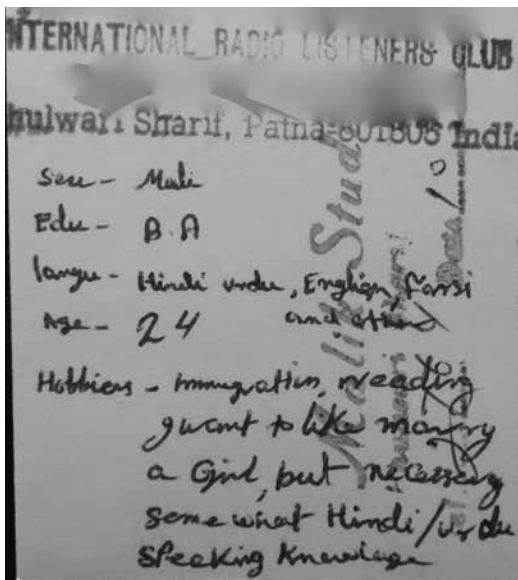 INTERNATIONAL RADIO LISTENERS CLUB
hulwari Sharif, Patna-801505 India
Sex - Male
Edu - B.A
langu - Hindi urdu, English, Farsi
and others
Age - 24
Hobbiers - immugration, reading
I want to like marry
a Girl, but necessary
some what Hindi/urdu
speaking Knowlage
Malik Stud
Date